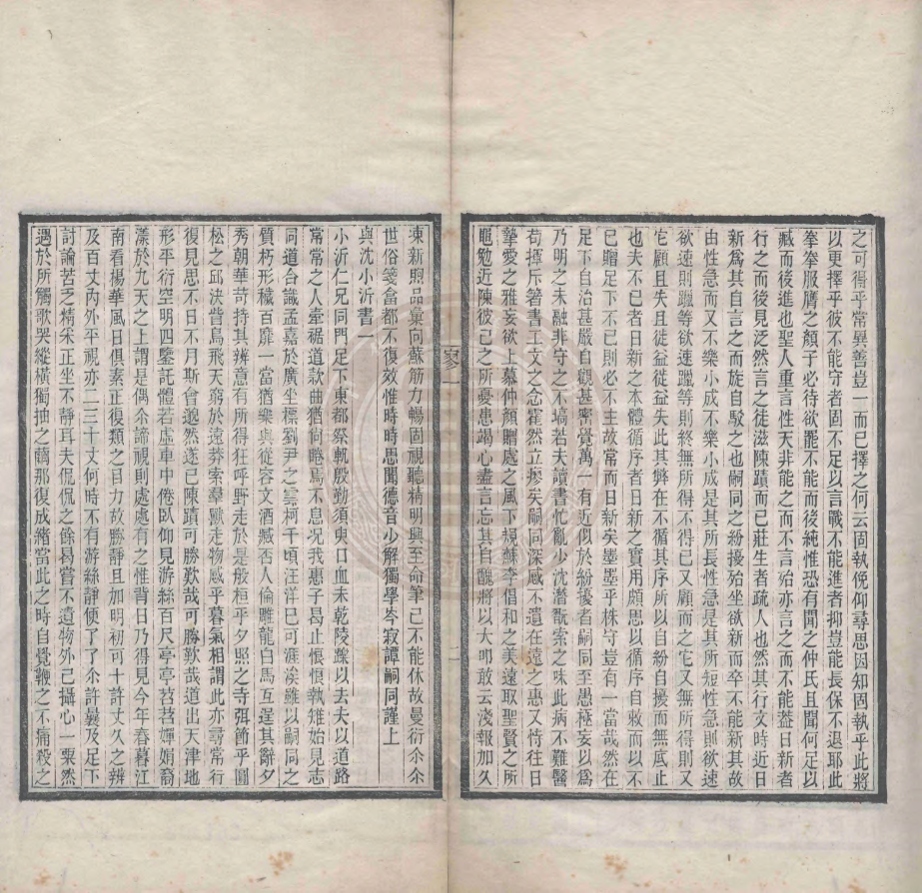 之可得乎常異善豈一而已擇之何云固執俛仰尋思因知固執乎此將
以更擇乎彼不能守者固不足以言戰不能進者抑豈能長保不退耶此
拳拳服膺之顏子必待欲罷不能而後純惟恐有聞之仲氏且聞何足以
臧而後進也聖人重言性天非能之而不言殆亦言之而不能蓋日新者
行之而後見泛然言之徒滋陳蹟而已莊生者疏人也然其行文時近日
新爲其自言之而旋自駁之也嗣同之紛擾殆坐欲新而卒不能新其故
由性急而又不樂小成不樂小成是其所長性急是其所短性急則欲速
欲速則躐等欲速躐等則終無所得不得已又顧而之它又無所得則又
它顧且失且徒益徒益失此其弊在不循其序所以自紛自擾而無底止
也夫不已者日新之本體循序者日新之實用頗思以循序自敕而以不
已賵足下不已則必不主故常而日新矣墨墨乎株守豈有一當哉然在
足下自治甚嚴自觀甚密覺萬一有近似於紛擾者嗣同至愚極妄以爲
乃明之未融非守之不塙若夫讀書忙亂少沈潛翫索之味此病不難醫
苟揮斥箸書工文之念霍然立瘳矣嗣同深感不遺在遠之惠又恃往日
摯愛之雅妄欲上慕仲顏贈處之風下規蘇李倡和之美遠取聖賢之所
黽勉近陳彼已之所憂患竭心盡言忘其自醜將以大叩敢云淺報加久
涷新煦品彙向蘇筋力暢固視聽精明興至命筆已不能休故曼衍尒尒
世俗箋啻都不復效惟時時思聞德音少解獨學岑寂譚嗣同謹上
與沈小沂書一
小沂仁兄同門足下東都祭軷殷勤須臾口血未乾陵蹤以去夫以道路
常常之人牽裾道款曲猶尙眷焉不息况我惠子曷止悵惘執雉始見志
同道合識孟嘉於廣坐標劉尹之雲柯千頃汪洋巳可涯涘雖以嗣同之
質朽形穢百靡一當猶樂與從容文酒臧否人倫雕龍白馬互逞其辭夕
秀朝華苛持其辨意有所得狂呼野走於是般桓乎夕照之寺弭節乎圓
松之邱決眥鳥飛天窮於遠莽索羣獸走物感乎暮氣相謂此亦尋常行
復見思不日不月斯會邈然遂已陳蹟可勝歎哉可勝歎哉道出天津地
形平衍空明四鑒託體若虛車中倦臥仰見游絲百尺亭亭苕苕嬋娟裔
漾於九天之上謂是偶尒諦視則處處有之惟背日乃得見今年春暮江
南看楊華風日俱素正復類之目力故勝靜且加明初可十許丈久之辨
及百丈內外平視亦二三十丈何時不有游絲靜便了了尒許曩及足下
討論苦乏精采正坐不靜耳夫侃侃之餘曷嘗不遺物外己攝心一栗然
遇於所觸歌哭縱橫獨抽之繭那復成緒當此之時自覺鞭之不痛殺之